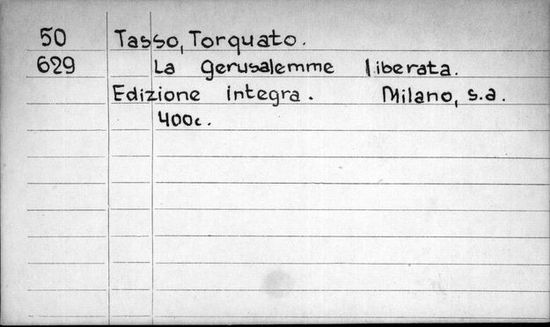 50 Tasso, Torquato.
629 La Gerusalemme liberata.
Edizione integra. Milano, s.a.
400c.